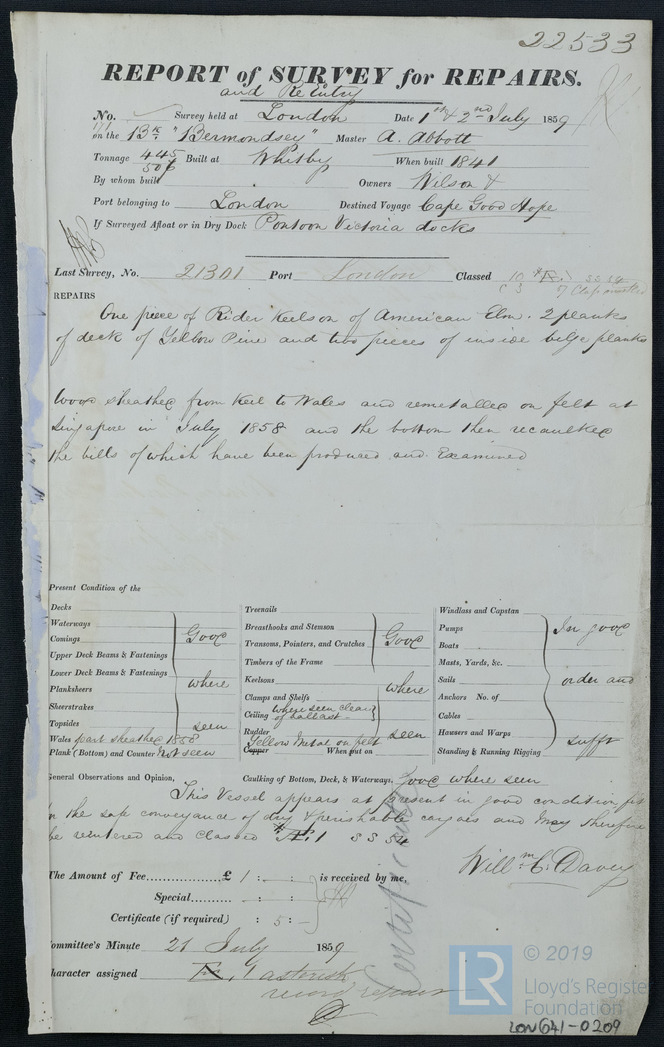 22533
REPORT of SURVEY for REPAIRS.
and ReEntry
No. Survey held at London Date 1st & 2nd July 1859
on the Bk "Bermondsey" Master A. Abbott
Tonnage 445 Built at Whitby When built 1841
506
By whom built Owners Wilson &
Port belonging to London Destined Voyage Cape Good Hope
If Surveyed Afloat or in Dry Dock Pontoon Victoria docks
Last Survey, No. 21301 Port London Classed 10
REPAIRS
One piece of Rider Keelson of American Elm. 2 planks
of deck of Yellow Pine and two pieces of inside bilge planks
Wood sheathed from Keel to Wales and remetalled on felt at
Singapore in July 1858 and the bottom then recaulked
the bills of which have been produced and Examined
Present Condition of the
Decks
Waterways
Comings
Upper Deck Beams & Fastenings
Lower Deck Beams & Fastenings
Planksheers
Sheerstrakes
Topsides
Good where seen
Wales part sheathed 1858
Plank (Bottom) and Counter Not seen
Treenails
Breasthooks and Stemson
Transoms, Pointers, and Crutches
Timbers of the Frame
Keelsons
Clamps and Shelfs
Ceiling where seen clear of ballast
Rudder
Good where seen
Yellow Metal on felt
Copper When put on
Windlass and Capstan
Pumps
Boats
Masts, Yards, &c.
Sails
Anchors No. of
Cables
Hawsers and Warps
Standing & Running Rigging
In good order and sufft
General Observations and Opinion, Caulking of Bottom, Deck, & Waterways, Good where seen
This Vessel appears at present in good condition, fit
the safe conveyance of dry & perishable cargoes and may therefore
be reentered and classed Æ 1 SS 54
Willm C. Davey
The Amount of Fee £ 1 : - : - is received by me,
Special : - : -
Certificate (if required) : 5 : -
Committee's Minute 21 July 1859
Character assigned Æ, 1 asterisk
record repairs
© 2019
LR Lloyd's Register
Foundation
LON641-0209